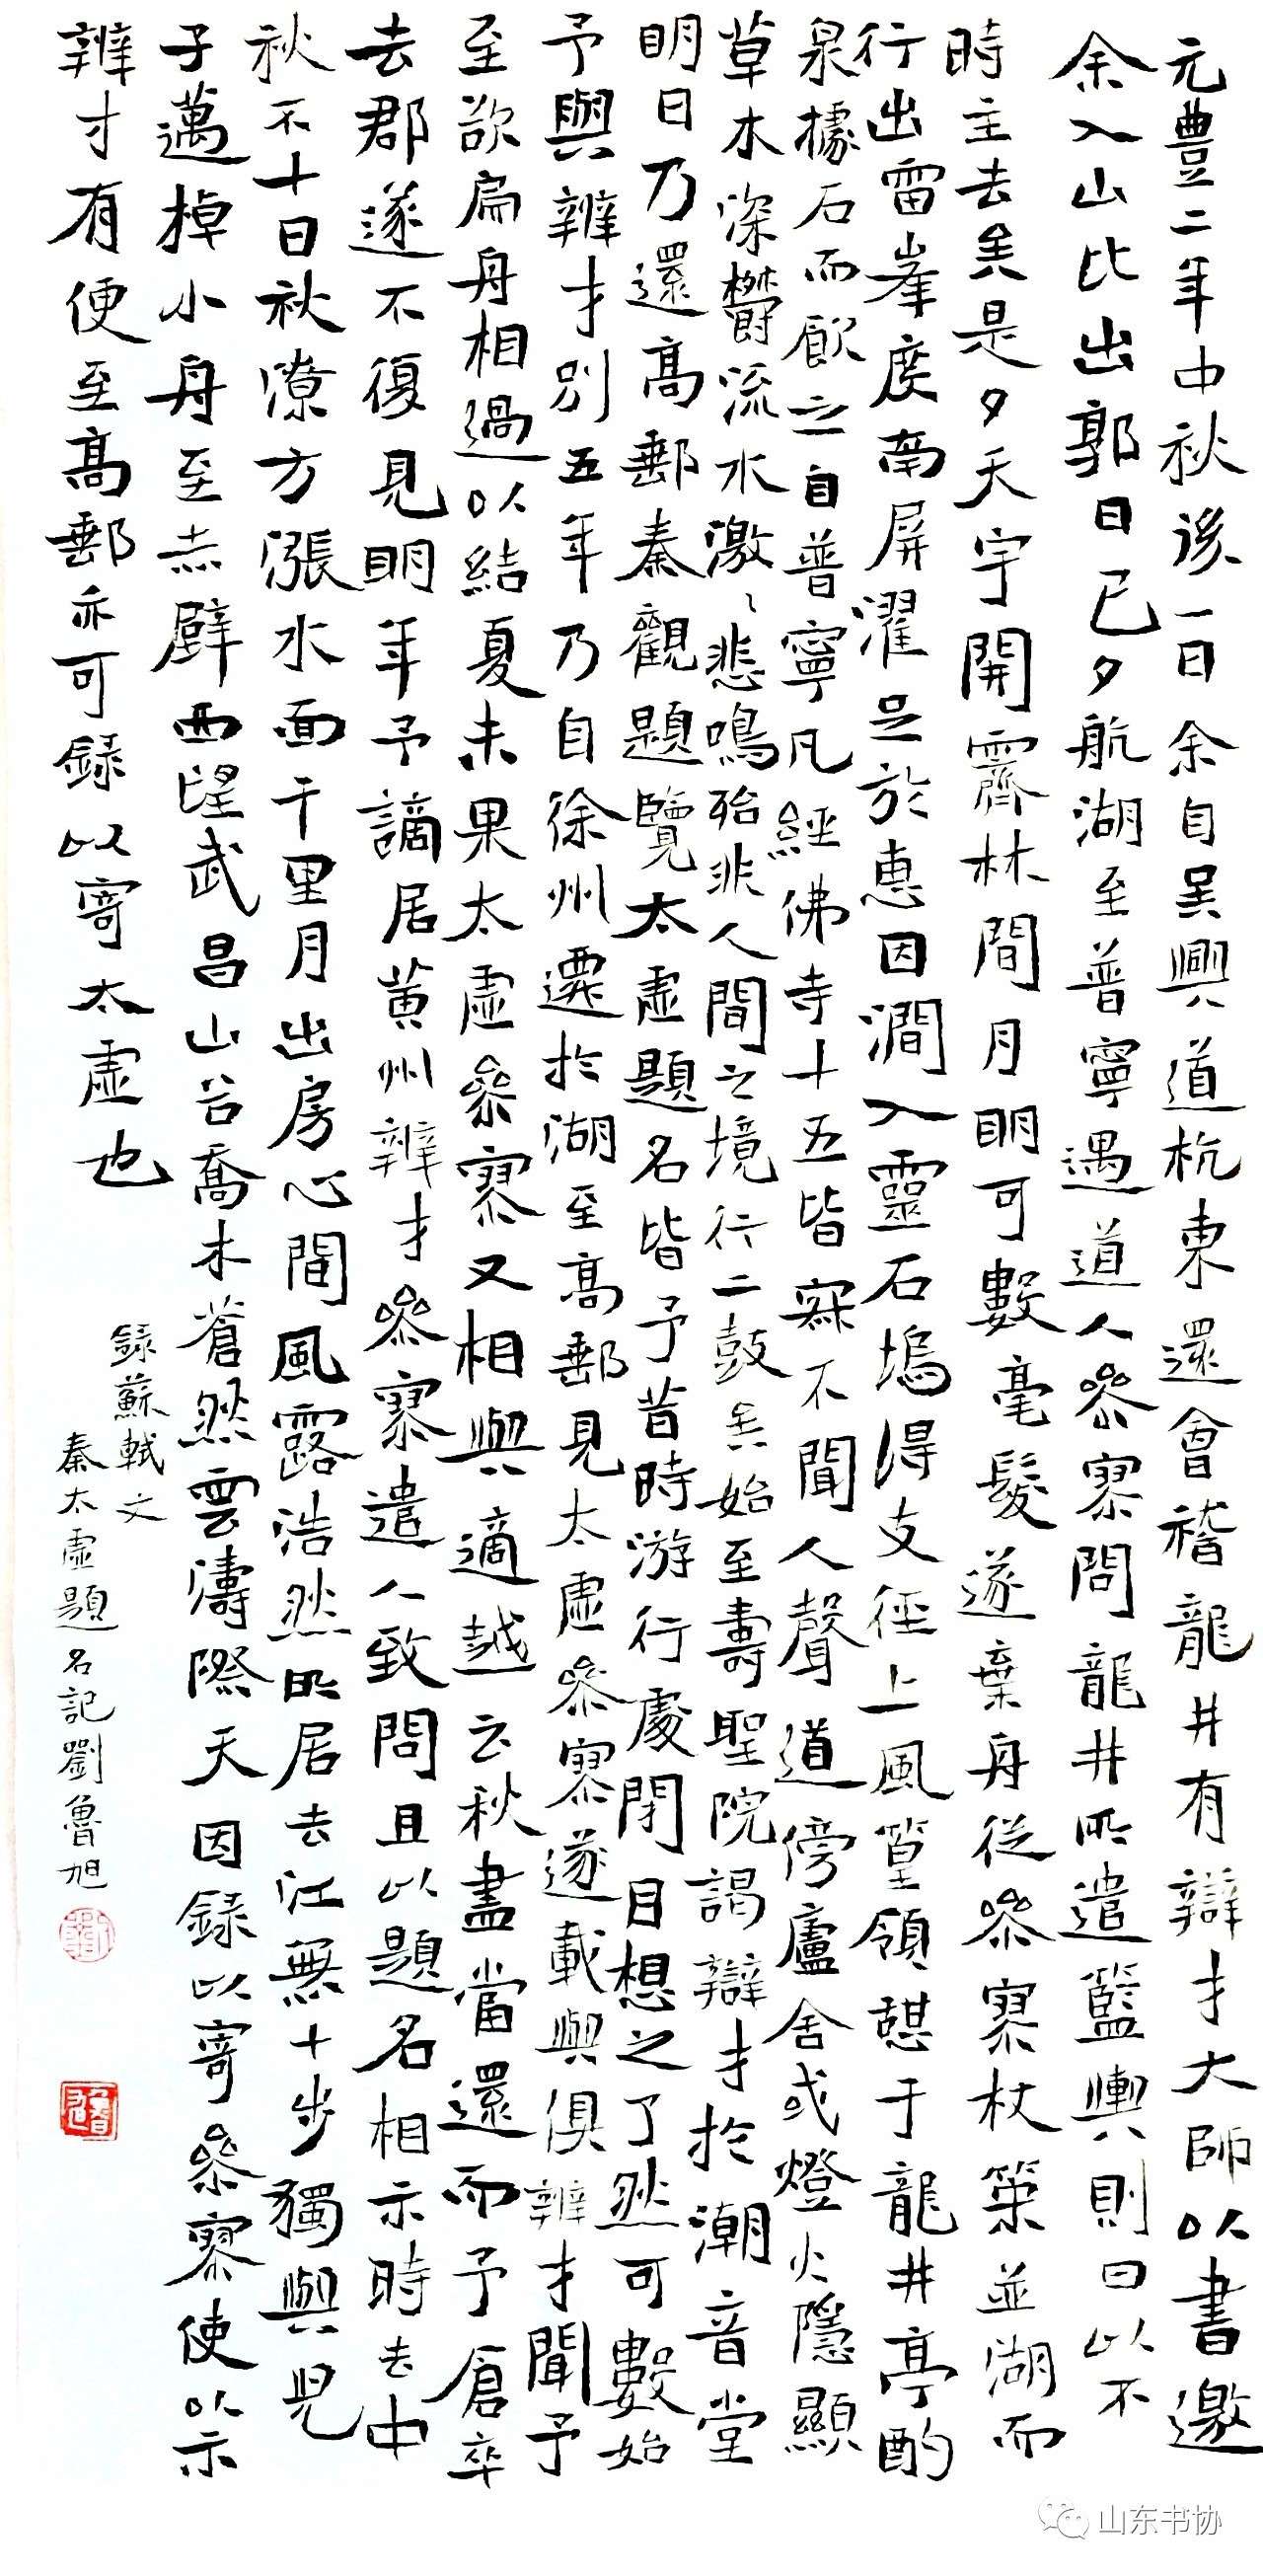 元豐二年中秋後一日余自吳興道杭東還會稽龍井有辯才大師以書邀
余入山比出郭日已夕航湖至普寧遇道人參寥問龍井所遣籃輿則曰以不
時至去矣是夕天宇開霽林間月明可數毫髮遂棄舟從參寥杖策並湖而
行出雷峯度南屏濯足於惠因澗入靈石塢得支徑上風篁嶺憩于龍井亭酌
泉據石而飲之自普寧凡經佛寺十五皆寂不聞人聲道傍廬舍或燈火隱顯
草木深鬱流水激激悲鳴殆非人間之境行二鼓矣始至壽聖院謁辯才於潮音堂
明日乃還高郵秦觀題覽太虛題名皆予昔時游行處閉目想之了然可數始
予與辨才別五年乃自徐州遷於湖至高郵見太虛參寥遂載與俱辨才聞予
至欲扁舟相過以結夏未果太虛參寥又相與適越云秋盡當還而予倉卒
去郡遂不復見明年予謫居黃州辨才參寥遣人致問且以題名相示時去中
秋不十日秋潦方漲水面千里月出房心間風露浩然所居去江無十步獨與兒
子邁棹小舟至赤壁西望武昌山谷喬木蒼然雲濤際天因録以寄參寥使以示
辨才有便至高郵亦可録以寄太虛也
録蘇軾文
秦太虛題名記劉魯旭
山东书协